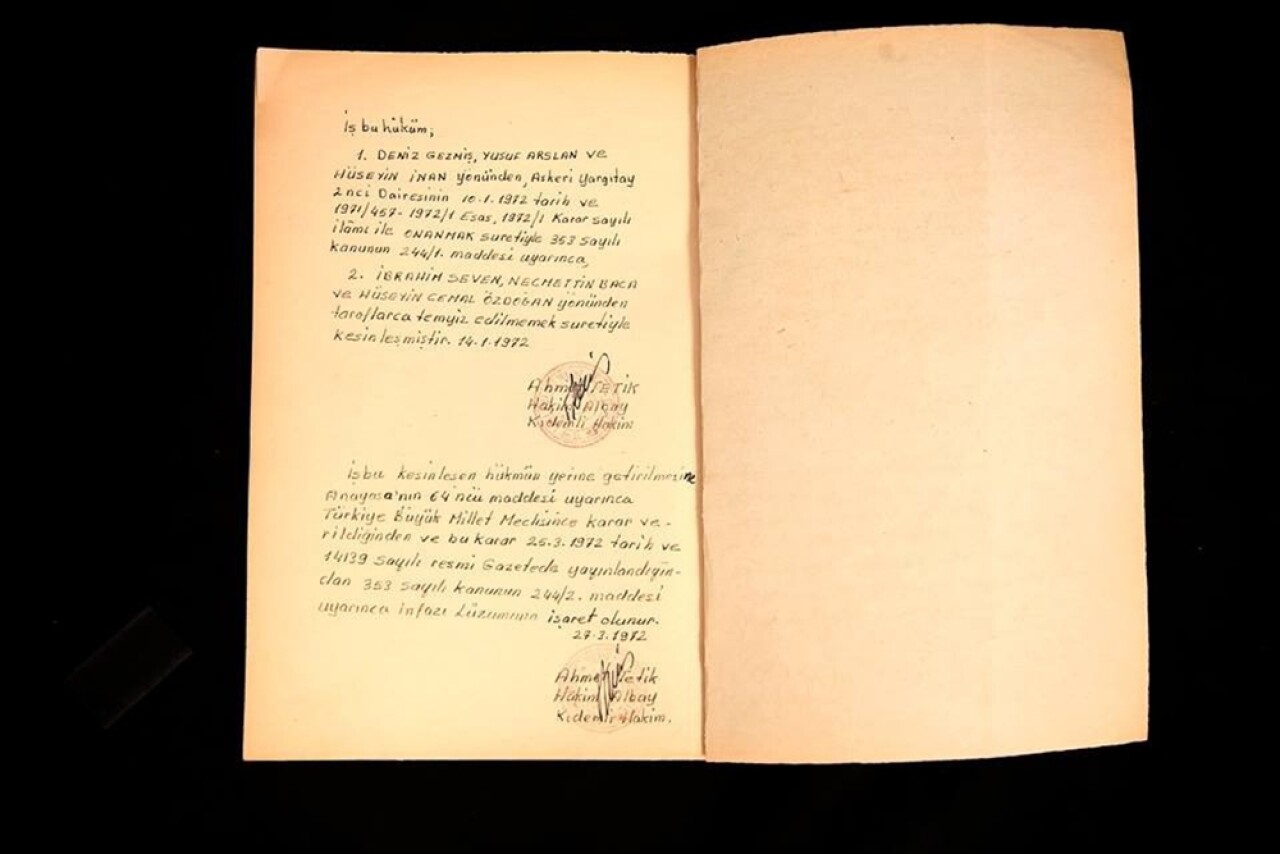 İş bu hüküm;
1. DENİZ GEZMİŞ, YUSUF ARSLAN ve
HÜSEYİN İNAN yönünden, Askeri Yargıtay
2nci Dairesinin 10.1.1972 tarih ve
1971/457-1972/1 Esas, 1972/1 Karar sayılı
ilâmı ile ONANMAK suretiyle 353 sayılı
kanunun 244/1. maddesi uyarınca,
2. İBRAHİM SEVEN, NECMETTİN BACA
ve HÜSEYİN CEMAL ÖZDOĞAN yönünden
taraflarca temyiz edilmemek suretiyle
kesinleşmiştir. 14.1.1972
Ahmet TETİK
Hakim Albay
Kıdemli Hakim
İşbu kesinleşen hükmün yerine getirilmesine
Anayasa'nın 64'ncü maddesi uyarınca
Türkiye Büyük Millet Meclisince karar ve-
rildiğinden ve bu karar 25.3.1972 tarih ve
14139 sayılı resmi Gazetede yayınlandığın-
dan 353 sayılı kanunun 244/2. maddesi
uyarınca infazı Lüzumuna işaret olunur.
27.3.1972
Ahmet Tetik
Hakim Albay
Kıdemli Hakim.